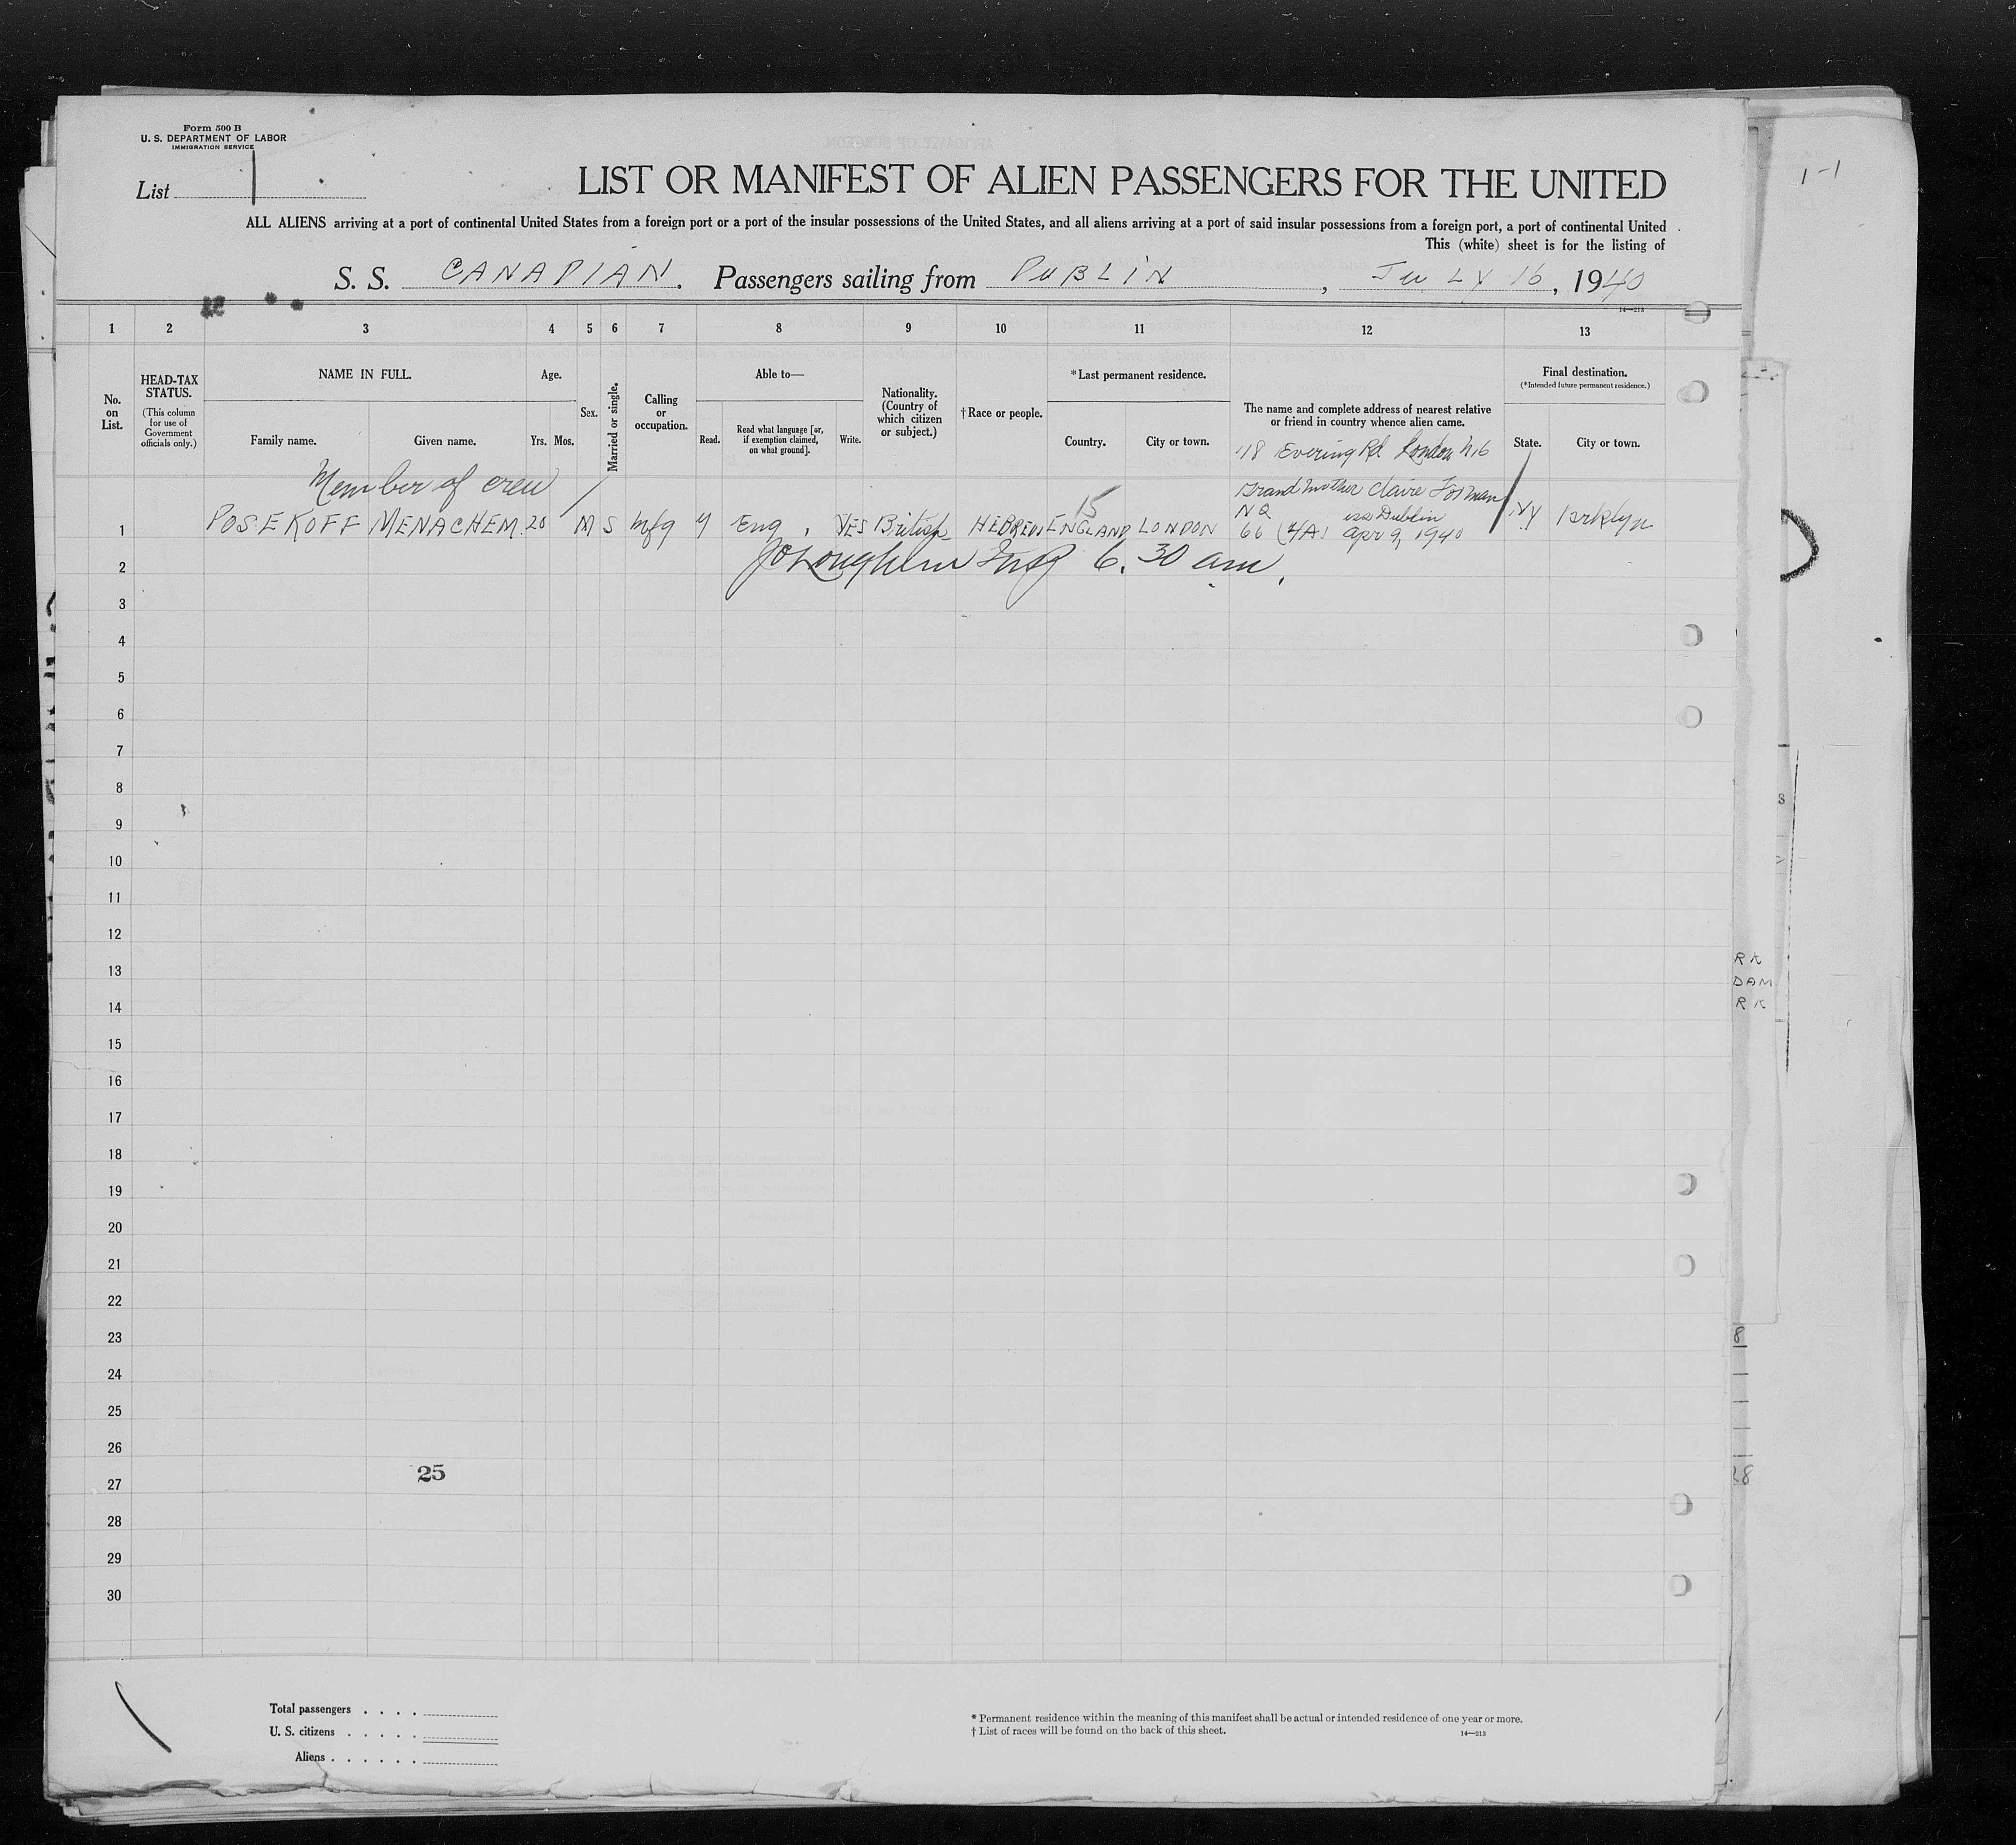 Form 500 B
U. S. DEPARTMENT OF LABOR
IMMIGRATION SERVICE
List 1
1-1
LIST OR MANIFEST OF ALIEN PASSENGERS FOR THE UNITED
ALL ALIENS arriving at a port of continental United States from a foreign port or a port of the insular possessions of the United States, and all aliens arriving at a port of said insular possessions from a foreign port, a port of continental United
This (white) sheet is for the listing of
S. S. CANADIAN. Passengers sailing from DUBLIN, JULY 16, 1940
14—213
1 2 3 4 5 6 7 8 9 10 11 12 13
No. on List.
HEAD-TAX STATUS.
(This column for use of Government officials only.)
NAME IN FULL.
Family name. Given name.
Age.
Yrs. Mos.
Sex.
Married or single.
Calling or occupation.
Able to—
Read. Read what language [or, if exemption claimed, on what ground]. Write.
Nationality. (Country of which citizen or subject.)
† Race or people.
*Last permanent residence.
Country. City or town.
The name and complete address of nearest relative or friend in country whence alien came.
Final destination.
(*Intended future permanent residence.)
State. City or town.
118 Evering Rd London N16
Member of crew
15
Grandmother Claire
NQ iss Dublin
1 POSEKOFF MENACHEM 20 M S mfg y Eng, YES British HEBREW ENGLAND LONDON 66 Apr 9, 1940 NY Brklyn
2 Insp 6.30 am.
3
4
5
6
7
8
9
10
11
12
13
14
15
16
17
18
19
20
21
22
23
24
25
26
27
28
29
30
25
RK
DAM
RK
8
28
Total passengers . . . .
U. S. citizens . . . . .
Aliens . . . . . .
* Permanent residence within the meaning of this manifest shall be actual or intended residence of one year or more.
† List of races will be found on the back of this sheet.
14—213